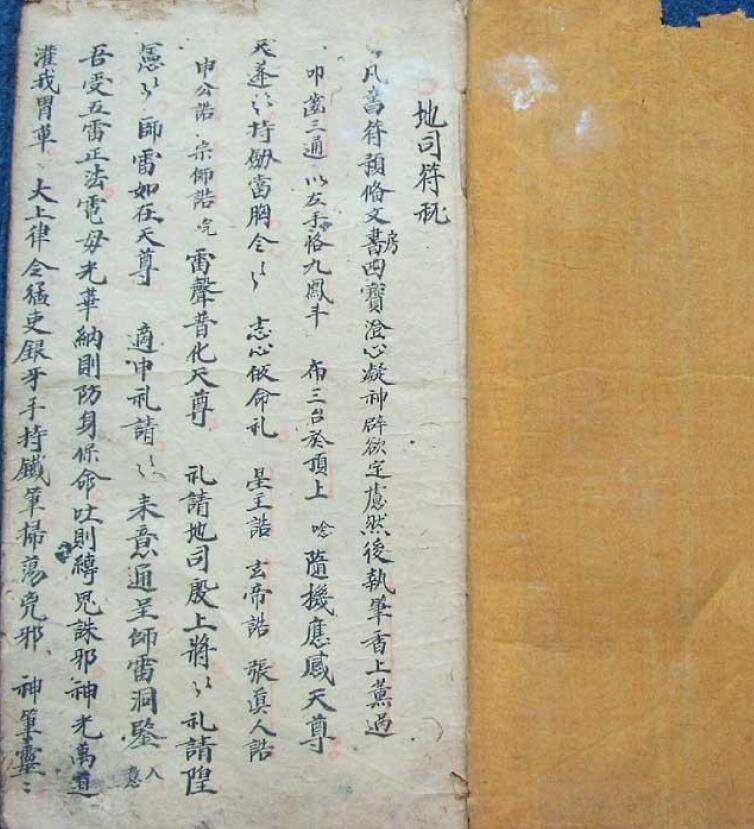 地司符秘
凡書符預俻文房書四寳澄心凝神辟欲定慮然後執筆香上薰过
叩齒三通 以左手恪九鳳斗 布三台於頂上 唸隨機應感天尊
天蓬 持劍當胸令 志心皈命礼 星主誥 玄帝誥 張真人誥
申公誥 宗师誥 雷聲普化天尊 礼請地司殷上將 礼請
師雷如在天尊 適申礼請 来意通呈师雷洞鑒 入意
吾受五雷正法電母光華納則防身保命吐則縛鬼誅邪神光萬道
灌我胃草 大上律令猛吏銀牙手持鐵筆掃荡兇邪 神筆靈